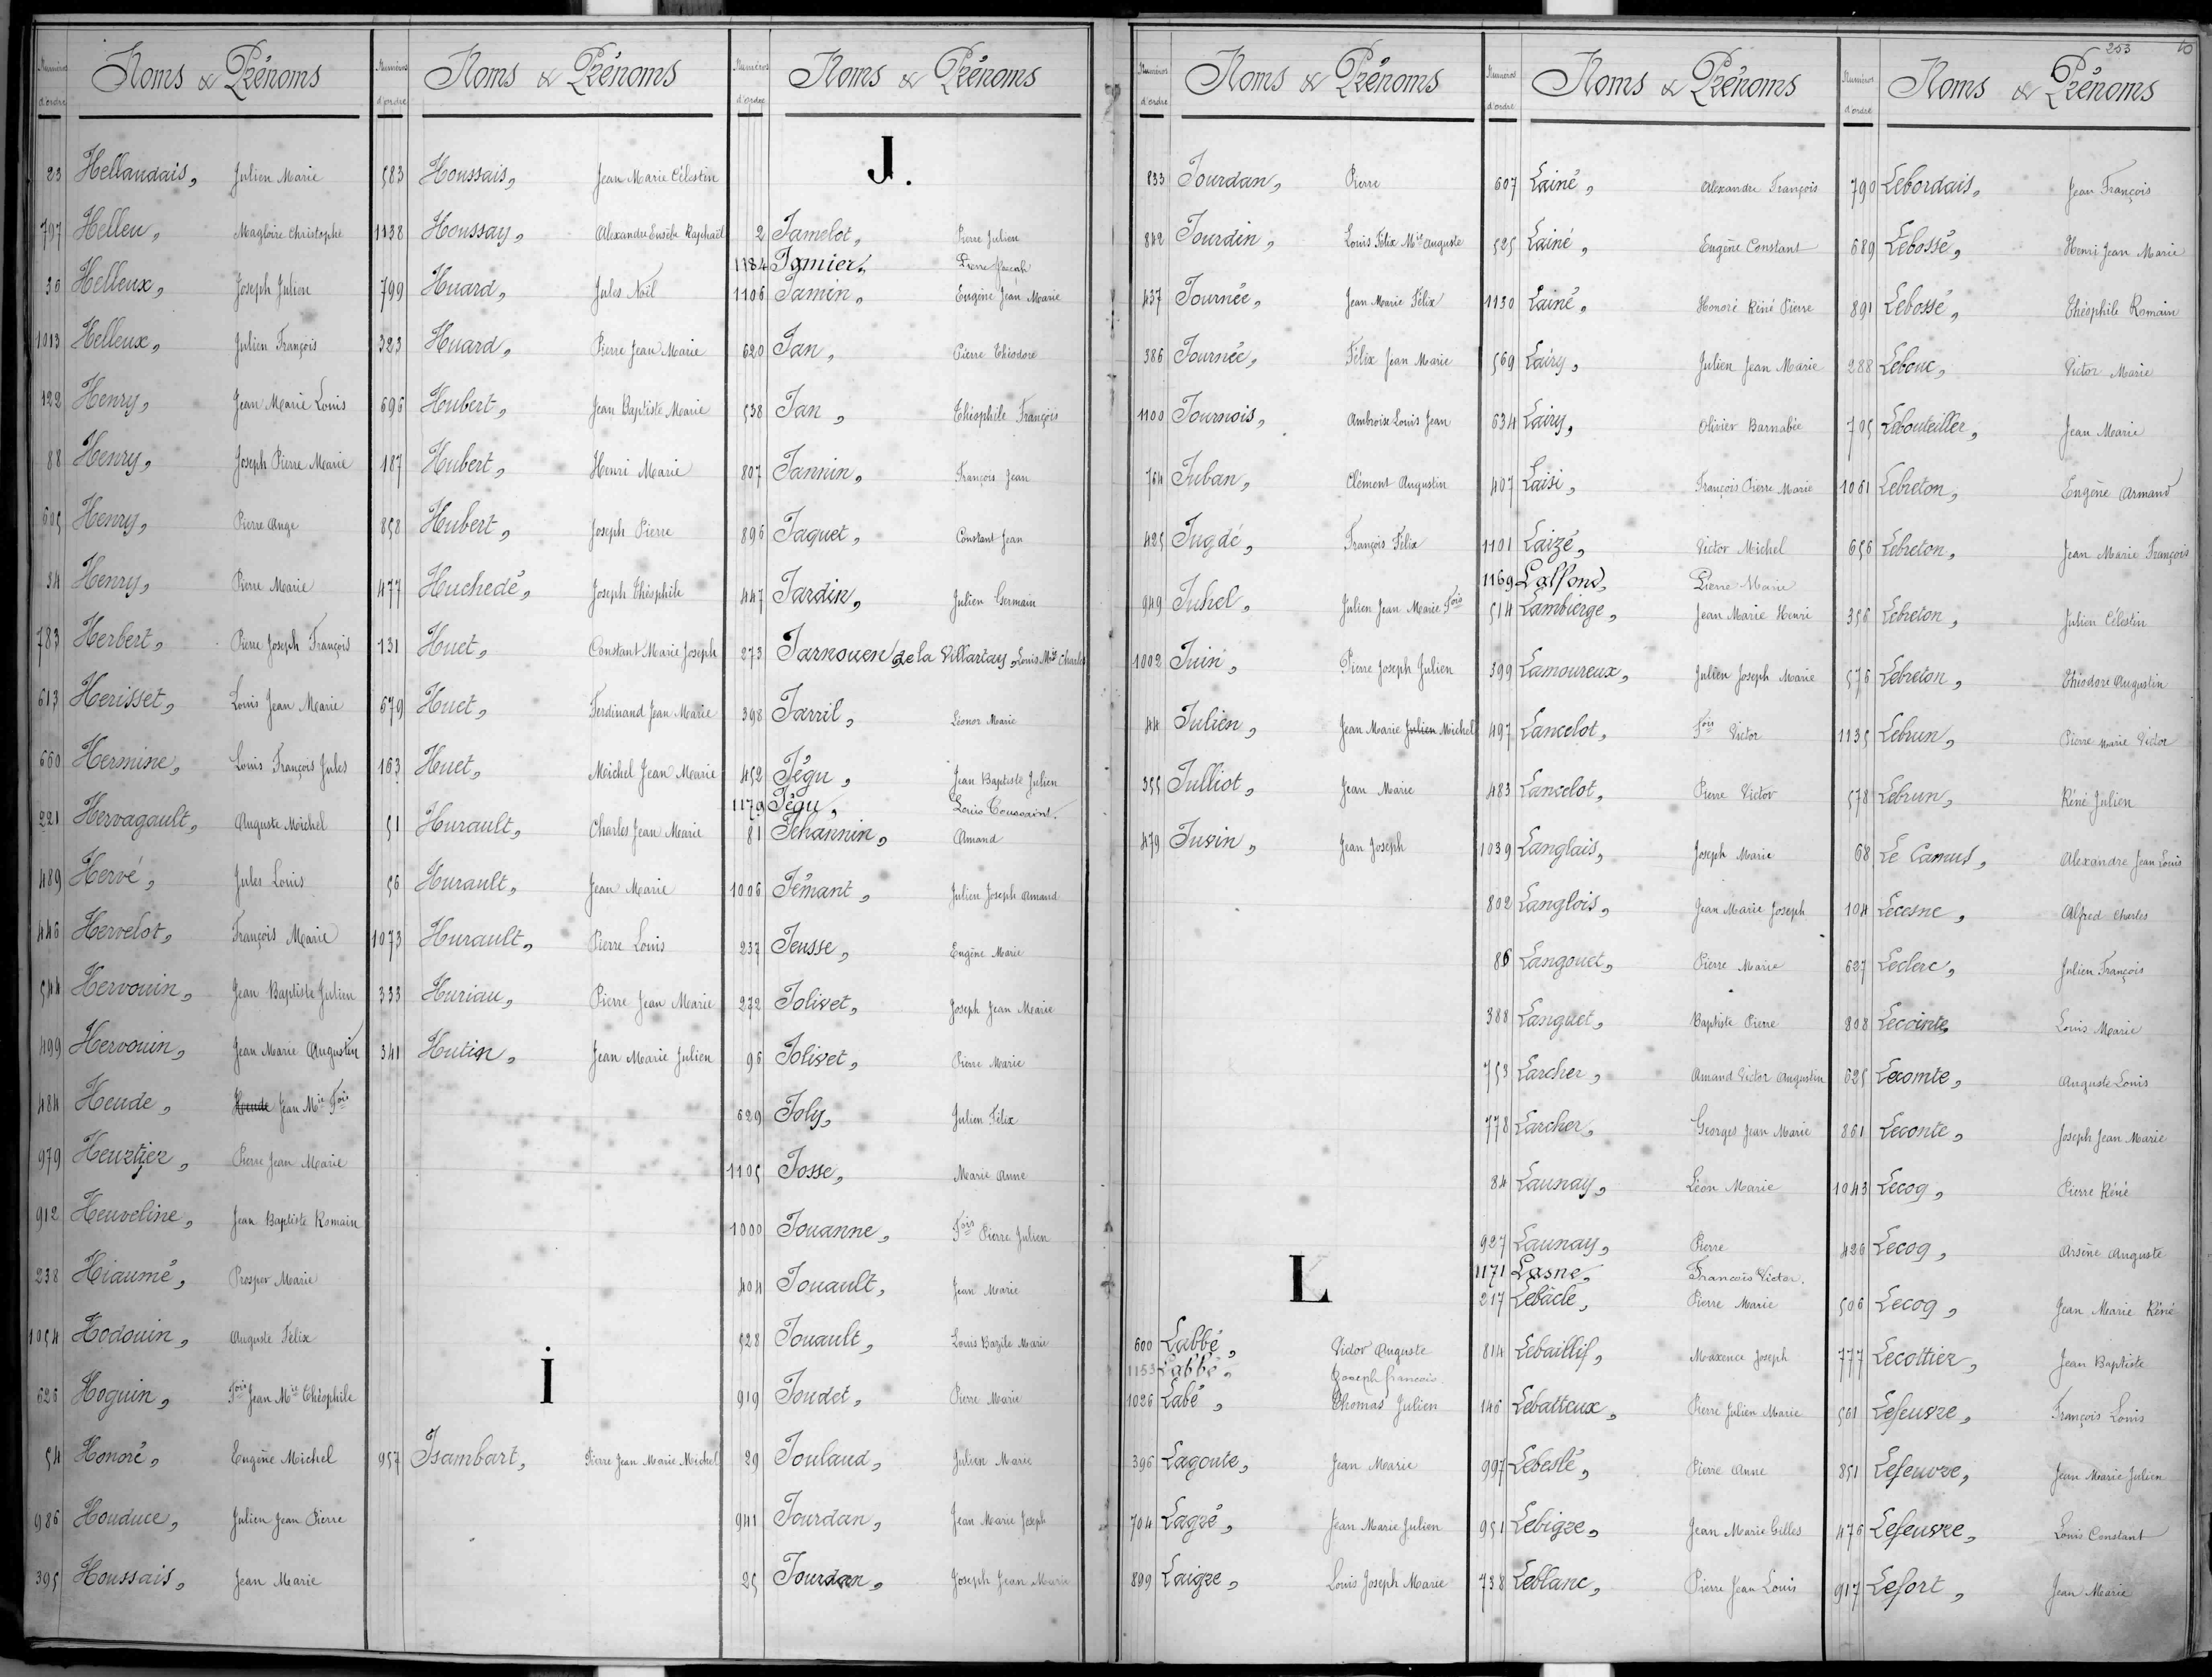 Numéros d'ordre Noms & Prénoms
23 Hellaudais, Julien Marie
797 Helleu, Magloire Christophe
30 Helleux, Joseph Julien
1013 Helleux, Julien François
122 Henry, Jean Marie Louis
88 Henry, Joseph Pierre Marie
605 Henry, Pierre Ange
34 Henry, Pierre Marie
783 Herbert, Pierre Joseph François
613 Herisset, Louis Jean Marie
660 Hermine, Louis François Jules
221 Hervagault, Auguste Michel
489 Hervé, Jules Louis
446 Hervelot, François Marie
544 Hervouin, Jean Baptiste Julien
499 Hervouin, Jean Marie Augustin
484 Heude, Heude Jean Mie Fois
979 Heurtier, Pierre Jean Marie
912 Heuveline, Jean Baptiste Romain
238 Hiaumé, Prosper Marie
1054 Hodouin, Auguste Félix
626 Hoguin, Fois Jean Mie Théophile
54 Honoré, Eugène Michel
986 Houduce, Julien Jean Pierre
395 Houssais, Jean Marie
Numéros d'ordre Noms & Prénoms
583 Houssais, Jean Marie Célestin
1138 Houssay, Alexandre Eusèbe Raphaël
799 Huard, Jules Noël
323 Huard, Pierre Jean Marie
696 Hubert, Jean Baptiste Marie
187 Hubert, Henri Marie
858 Hubert, Joseph Pierre
477 Huchedé, Joseph Théophile
131 Huet, Constant Marie Joseph
679 Huet, Ferdinand Jean Marie
163 Huet, Michel Jean Marie
51 Hurault, Charles Jean Marie
56 Hurault, Jean Marie
1073 Hurault, Pierre Louis
333 Huriau, Pierre Jean Marie
341 Hutin, Jean Marie Julien
I
957 Isambart, Pierre Jean Marie Michel
Numéros d'ordre Noms & Prénoms
J.
2 Jamelot, Pierre Julien
1184 Jamier, Pierre
1106 Jamin, Eugène Jean Marie
620 Jan, Pierre Théodore
538 Jan, Théophile François
807 Jannin, François Jean
896 Jaquet, Constant Jean
447 Jardin, Julien Germain
273 Jarnouen de la Villartay, Louis Mie Charles
398 Jarril, Léonor Marie
452 Jégu, Jean Baptiste Julien
1179 Jégu, Louis Toussaint.
81 Jehannin, Amand
1006 Jémant, Julien Joseph Amand
237 Jeusse, Eugène Marie
272 Jolivet, Joseph Jean Marie
96 Jolivet, Pierre Marie
629 Joly, Julien Félix
1105 Josse, Marie Anne
1000 Jouanne, Fois Pierre Julien
404 Jouault, Jean Marie
528 Jouault, Louis Bazile Marie
919 Joudet, Pierre Marie
29 Joulaud, Julien Marie
941 Jourdan, Jean Marie Joseph
25 Jourdan, Joseph Jean Marie
Numéros d'ordre Noms & Prénoms
833 Jourdan, Pierre
842 Jourdin, Louis Félix Mie Auguste
437 Journée, Jean Marie Félix
386 Journée, Félix Jean Marie
1100 Journois, Ambroise Louis Jean
764 Juban, Clément Augustin
425 Jugdé, François Félix
949 Juhel, Julien Jean Marie Fois
1002 Juin, Pierre Joseph Julien
44 Julien, Jean Marie Julien Michel
355 Julliot, Jean Marie
479 Juvin, Jean Joseph
L
600 Labbé, Victor Auguste
1153 Labbé, Joseph françois
1026 Labé, Thomas Julien
396 Lagoute, Jean Marie
704 Lagré, Jean Marie Julien
899 Laigre, Louis Joseph Marie
Numéros d'ordre Noms & Prénoms
607 Lainé, Alexandre François
525 Lainé, Eugène Constant
1130 Lainé, Honoré Réné Pierre
569 Lairy, Julien Jean Marie
634 Lairy, Olivier Barnabée
407 Laisi, François Pierre Marie
1101 Laizé, Victor Michel
1169 Lalfond, Pierre Marie
514 Lambierge, Jean Marie Henri
399 Lamoureux, Julien Joseph Marie
497 Lancelot, Fois Victor
483 Lancelot, Pierre Victor
1039 Langlais, Joseph Marie
802 Langlois, Jean Marie Joseph
86 Langouet, Pierre Marie
388 Languet, Baptiste Pierre
753 Larcher, Amand Victor Augustin
778 Larcher, Georges Jean Marie
84 Launay, Léon Marie
927 Launay, Pierre
1171 Lasne, François Victor.
217 Lebâcle, Pierre Marie
814 Lebaillif, Maxence Joseph
146 Lebatteux, Pierre Julien Marie
997 Lebeslé, Pierre Anne
951 Lebigre, Jean Marie Gilles
738 Leblanc, Pierre Jean Louis
253 10
Numéros d'ordre Noms & Prénoms
790 Lebordais, Jean François
689 Lebossé, Henri Jean Marie
891 Lebossé, Théophile Romain
288 Lebouc, Victor Marie
705 Lebouteiller, Jean Marie
1061 Lebreton, Eugène Armand
656 Lebreton, Jean Marie François
356 Lebreton, Julien Célestin
576 Lebreton, Théodore Augustin
1135 Lebrun, Pierre Marie Victor
578 Lebrun, Réné Julien
68 Le Camus, Alexandre Jean Louis
104 Lecesne, Alfred Charles
627 Leclerc, Julien François
808 Lecointe, Louis Marie
625 Lecomte, Auguste Louis
861 Leconte, Joseph Jean Marie
1043 Lecoq, Pierre Réné
426 Lecoq, Arsène Auguste
506 Lecoq, Jean Marie Réné
777 Lecottier, Jean Baptiste
561 Lefeuvre, François Louis
851 Lefeuvre, Jean Marie Julien
476 Lefeuvre, Louis Constant
917 Lefort, Jean Marie